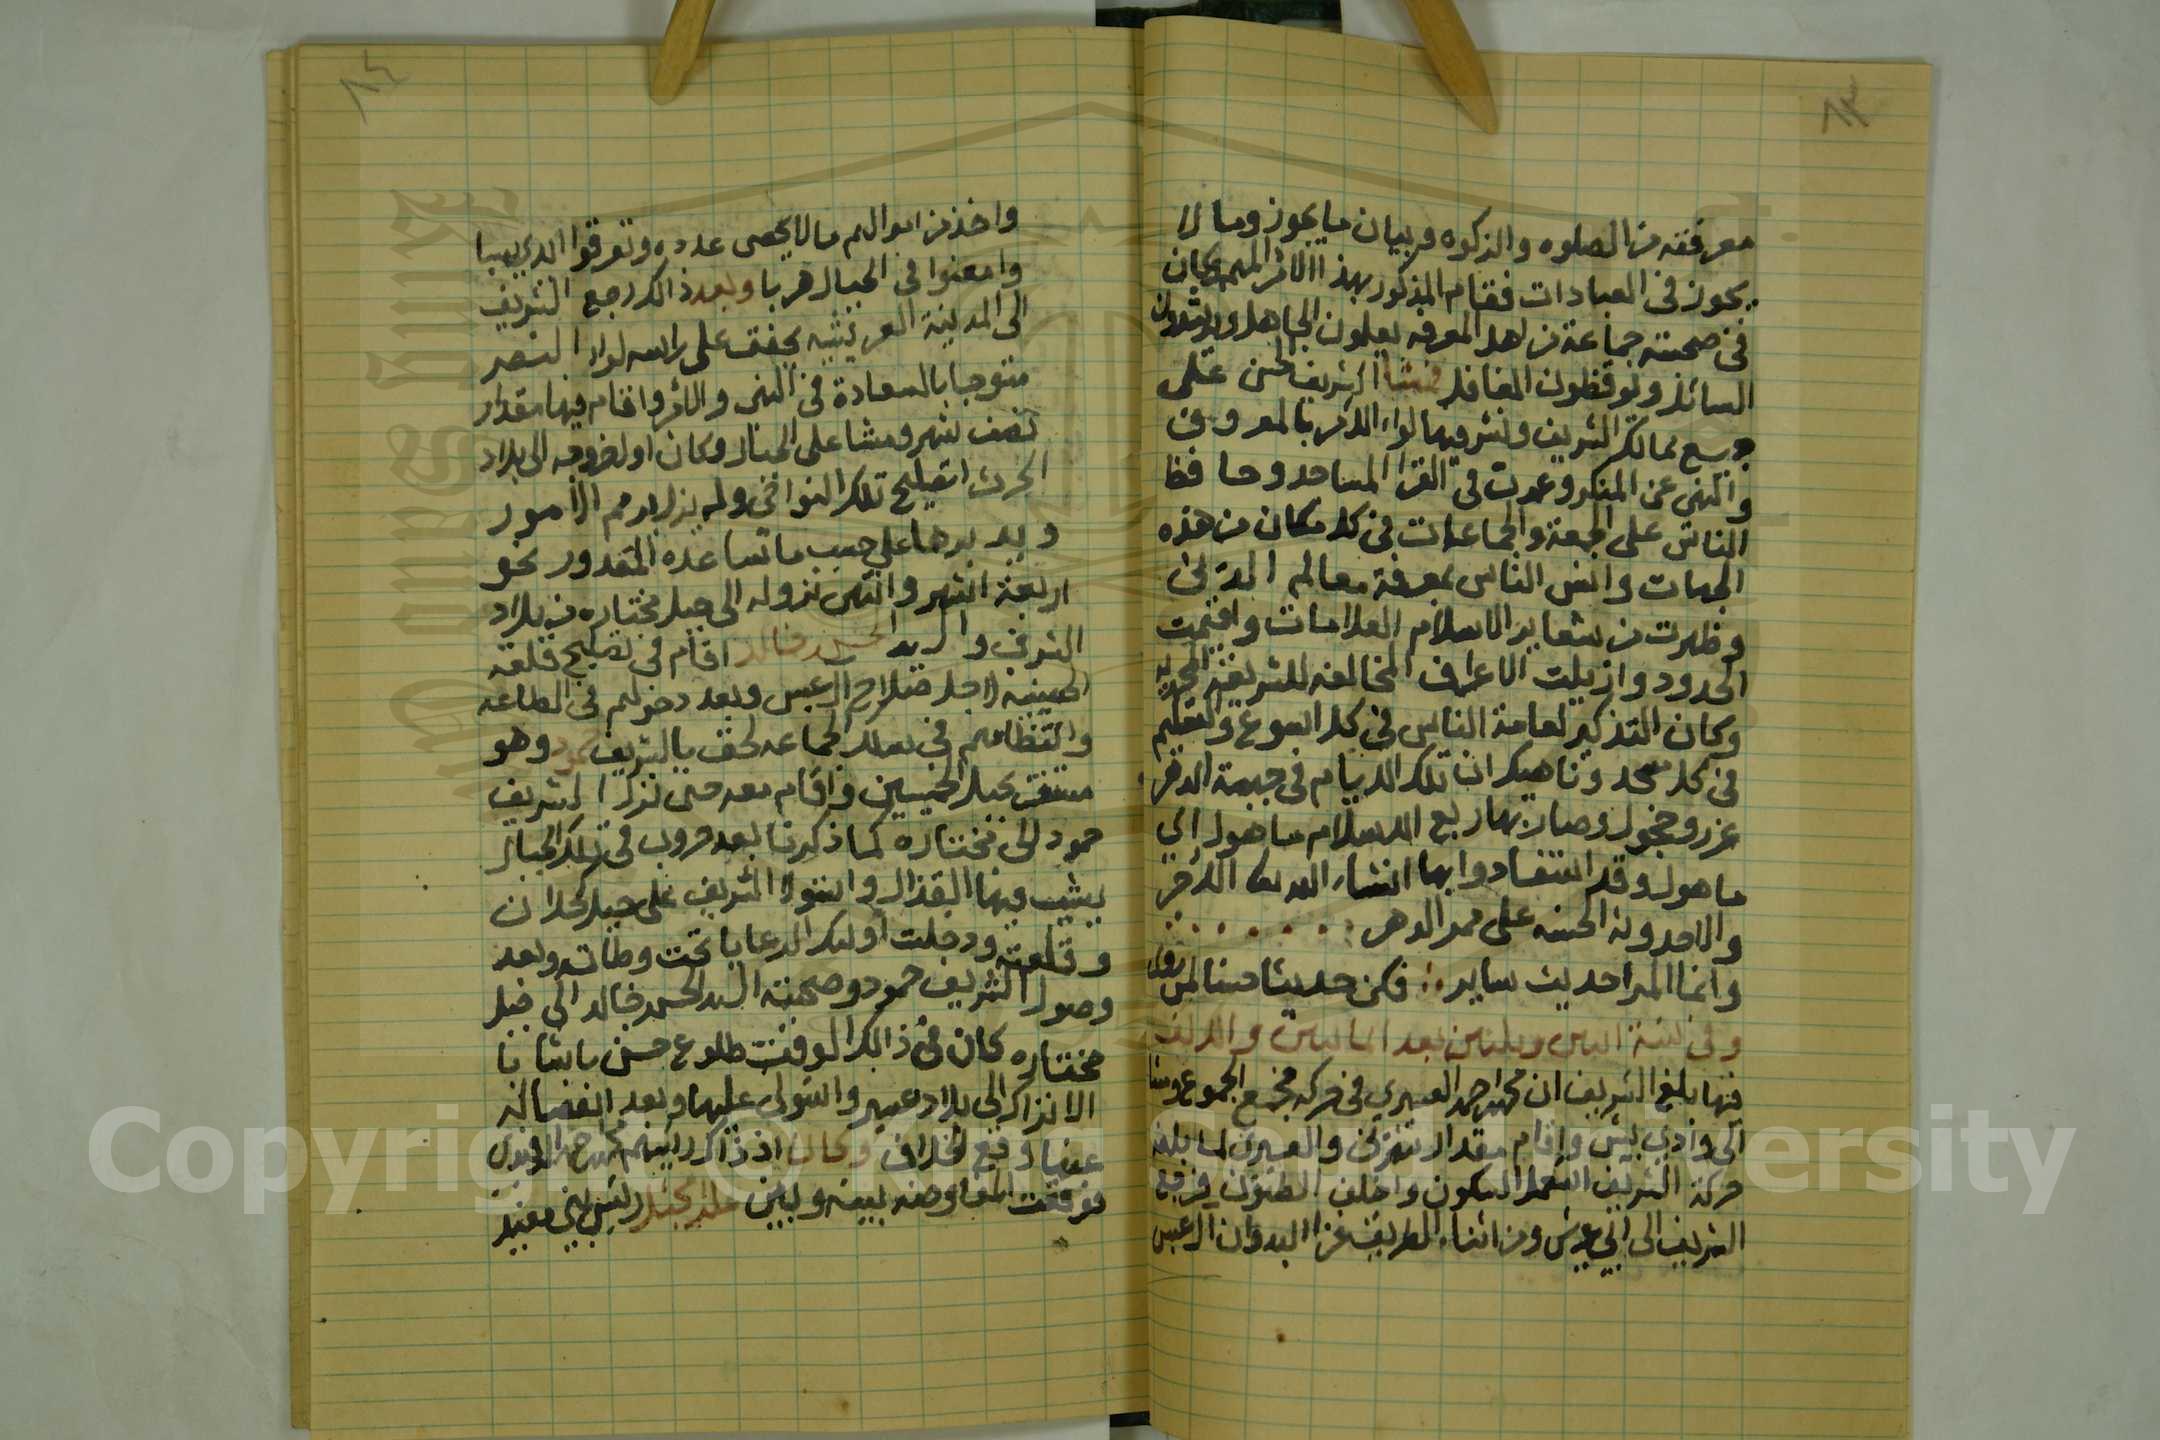 ٨٣
معرفته من الصلوه والزكوه وبيان ما يجوز وما لا
يجوز في العبادات فقام المذكور بهذا الامر المهم وكان
في صحبته جماعة من اهل المعرفه يعلمون الجاهل ويرشدون
السائل ويوقظون الغافل فمشا الشريف الحسن على
جميع ممالك الشريف ونشر فيها لواء الامر بالمعروف
والنهي عن المنكر وعمرت في القرا المساجد وحافظ
الناس على الجمعة والجماعات في كل مكان من هذه
الجهات وانس الناس بمعرفة معالم الدين
وظهرت من شعاير الاسلام العلامات واقيمت
الحدود وازيلت الاعراف المخالفه للشريعة المحمديه
وكان التذكير لعامة الناس في كل اسبوع والتعليم
في كل مسجد وناهيك ان تلك الايام في جبهة الدهر
غرر وحجول وصار بها ربع الاسلام ماهول اي
ماهول وقد استفادوا بها انشاء الله الاجر
والاحدوثة الحسنه على ممر الدهر
وانما المرا حديث ساير فكن حديثا حسنا لمن روى
وفي سنة اثنين وثلثين بعد المائتين والالف
فيها بلغ الشريف ان محمد احمد العسيري في حركه فجمع الجموع ومشا
الى وادي بيش واقام مقدار شهرين والعسيري لما بلغه
حركة الشريف استعمل السكون واخلف الظنون فرجع
الشريف الى ابي عريش ومن اثناء الطريق غزا البدوان الرعبس
٨٤
واخذ من اموالهم ما لا يحصى عدده وتفرقوا ايدي سبا
وامعنوا في الجبال هربا وبعد ذالك رجع الشريف
الى المدينة العريشيه يخفق على راسه لواء النصر
متوجا بالسعادة في النهي والامر واقام فيها مقدار
نصف شهر ومشا على الجبال وكان اول خروجه الى بلاد
الحرث لتصليح تلك النواحي ولم يزل يرمم الامور
ويدبرها على حسب ما تساعده المقدور نحو
اربعة اشهر وانتهى نزوله الى جبل مختاره من بلاد
الشرف والسيد الحسن خالد اقام في تصليح قلعة
الحسينيه لاجل صلاح الرعبس وبعد دخولهم في الطاعه
وانتظامهم في سلك الجماعه لحق بالشريف حمود وهو
مستقر بجبل الحسين واقام معه حتى نزل الشريف
حمود الى مختاره كما ذكرنا بعد حروب في تلك الجبال
يشيب فيها القذال واستولا الشريف على جبل كحلان
وقلعته ودخلت اوليك الرعايا تحت وطاته وبعد
وصول الشريف حمود وصحبته السيد الحسن خالد الى جبل
مختاره كان في ذالك الوقت طلوع حسن باشا با
الاتراك الى بلاد عسير واستولى عليها وبعد انفصاله
عنها وقع الخلاف وكان اذ ذاك رئيسهم محمد احمد الرفيدي
فوقعت المعاوضه بينه وبين رئيس بني مغيد